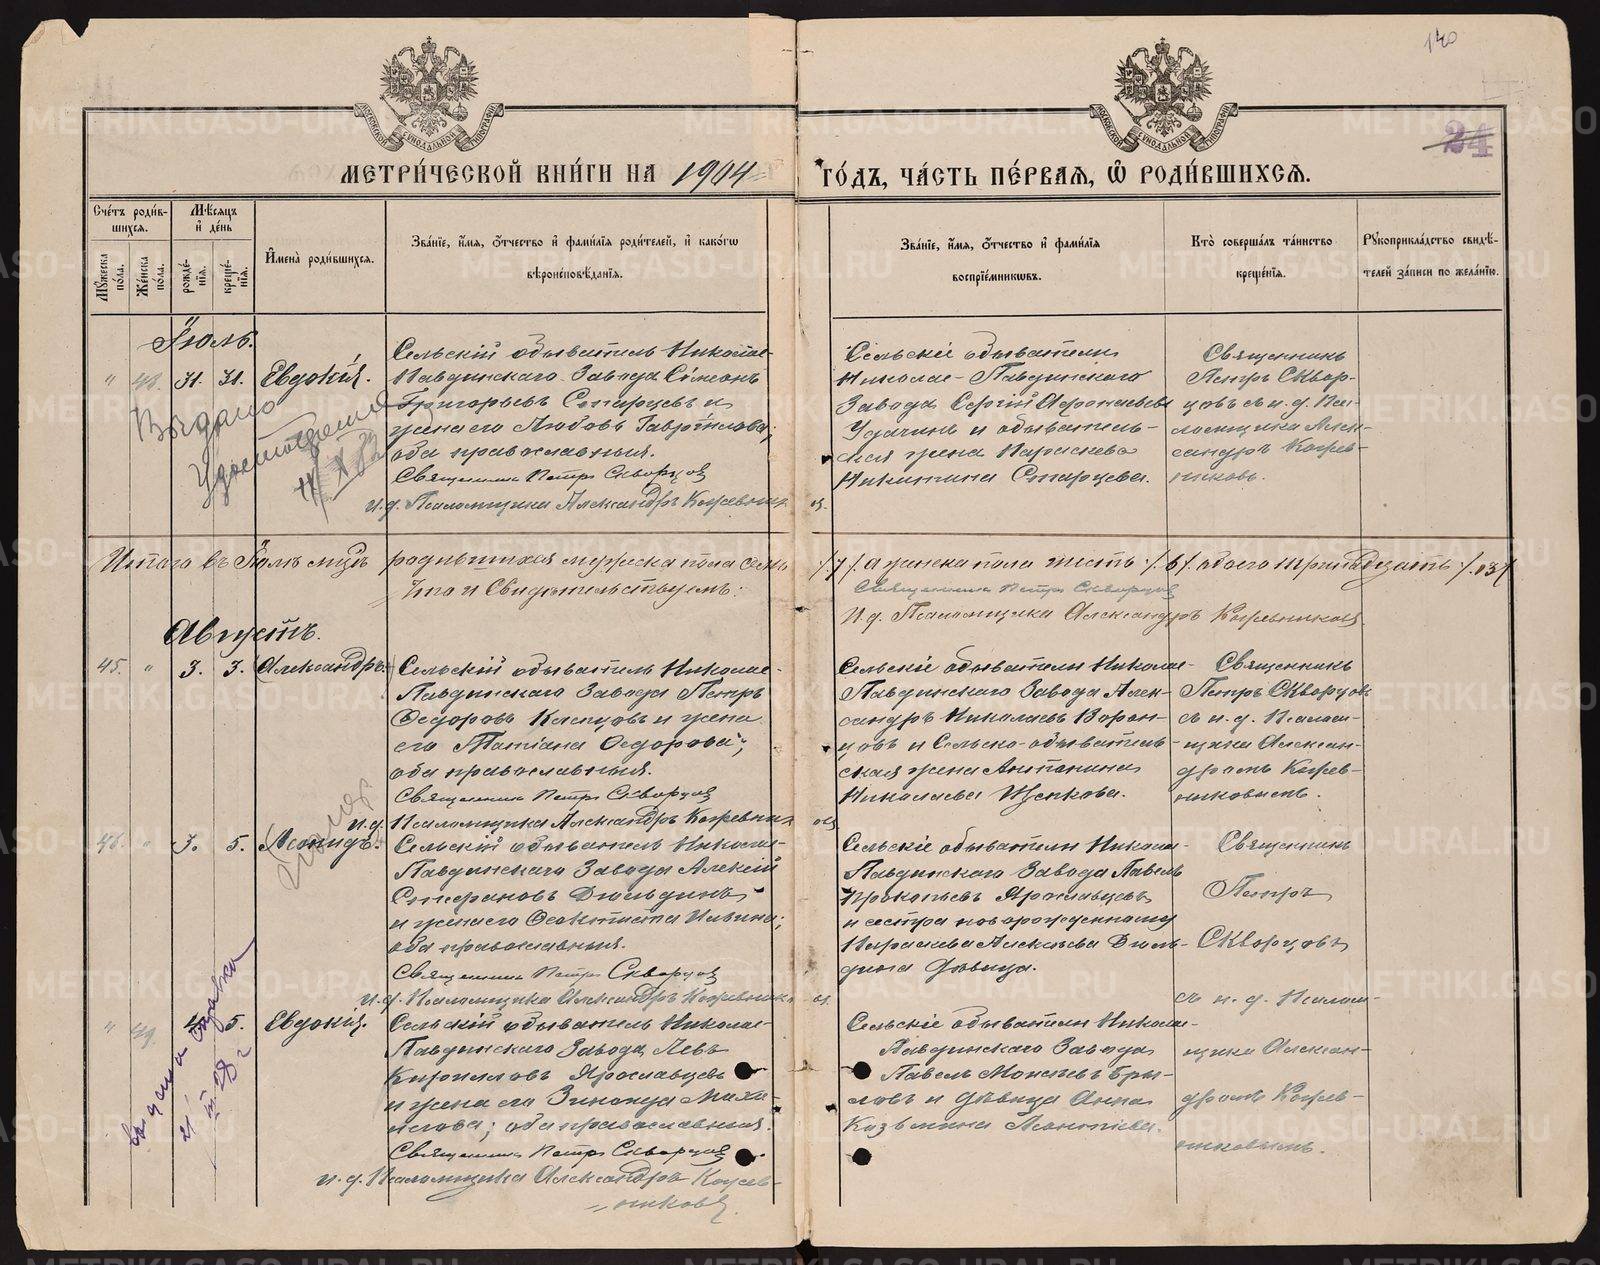 140
24
МЕТРИ́ЧЕСКОЙ КНИ́ГИ НА 1904 ГО́ДЪ, ЧА́СТЬ ПЕ́РВАѦ, Ѿ РОДИ́ВШИХСѦ.
Сче́тъ роди́вшихсѧ.
Мꙋ́жеска по́ла.
Же́нска по́ла.
Мѣ́сѧцъ и҆ де́нь
рожде́нїѧ.
креще́нїѧ.
И҆мена̀ роди́вшихсѧ.
Зва́нїе, и҆́мѧ, ѻ҆́тчество и҆ фами́лїѧ роди́телей, и҆ како́гѡ
вѣроисповѣ́данїѧ.
Зва́нїе, и҆́мѧ, ѻ҆́тчество и҆ фами́лїѧ
воспрїе́мникѡвъ.
Кто̀ соверша́лъ та́инство
креще́нїѧ.
Рꙋкоприкла́дство свидѣ́-
телей за́писи по жела́нїю.
Іюль.
" 48. 31. 31. Евдокія.
Сельскій обыватель Николае-
Павдинскаго Завода Симеонъ
Григорьевъ Старцевъ и
жена его Любовь Гаврiилова;
оба православныя.
Священникъ Петръ Скворцов
и.д. Псаломщика Александръ Кожевников.
Сельскіе обыватели
Николае-Павдинскаго
Завода Сергій Афанасьевъ
Удачинъ и обыватель-
ская жена Параскева
Никитина Старцева.
Священникъ
Петръ Сквор-
цовъ съ и.д. Пса-
ломщика Алек-
сандръ Кожев-
никовъ.
Выдано
Удостоверение
Итого въ Іюлѣ мцѣ родившихся мужеска пола семь /7/, а женска пола шесть /6/ обоего тринадцать /13/
Что и Свидѣтельствуемъ:
Священникъ Петръ Скворцов
И.д. Псаломщика Александръ Кожевников
Августъ.
45. " 3. 3. Александръ.
Сельскій обыватель Николае-
Павдинскаго Завода Петръ
Ѳедоровъ Казнцовъ и жена
его Татіана Ѳедорова;
оба православныя.
Священникъ Петръ Скворцов
и.д. Псаломщика Александръ Кожевников
Сельскіе обыватели Николае-
Павдинскаго Завода Алек-
сандръ Николаевъ Ворон-
цовъ и Сельско-обыватель-
ская жена Антонина
Николаева Щепкова.
Священникъ
Петръ Скворцовъ
съ и.д. Псалом-
щика Алексан-
дромъ Кожев-
никовымъ.
46. " 3. 5. Леонидъ.
Сельскій обыватель Николае-
Павдинскаго Завода Алексій
Стефановъ Дюльдинъ
и жена его Ѳеоктиста Ильина;
оба православныя.
Священникъ Петръ Скворцов
и.д. Псаломщика Александръ Кожевников
Сельскіе обыватели Николае-
Павдинскаго Завода Павелъ
Прокопьевъ Ярославцевъ
и сестра новорожденному
Параскева Алексѣева Дюль-
дина дѣвица.
Священникъ
Петръ
Скворцовъ
съ и.д. Псалом-
" 49. 4. 5. Евдокія.
Сельскій обыватель Николае-
Павдинскаго Завода Левъ
Кирилловъ Ярославцевъ
и жена его Зинаида Михаи-
лова; оба православныя.
Священникъ Петръ Скворцов
и.д. Псаломщика Александръ Кожев-
никовъ.
Сельскіе обыватели Николае-
Павдинскаго Завода
Павелъ Моисѣевъ Бры-
ловъ и дѣвица Анна
Козьмина Леонтіева.
щика Алексан-
дромъ Кожев-
никовымъ.
выдана справка
21/III-28 г
METRIKI.GASO-URAL.RU